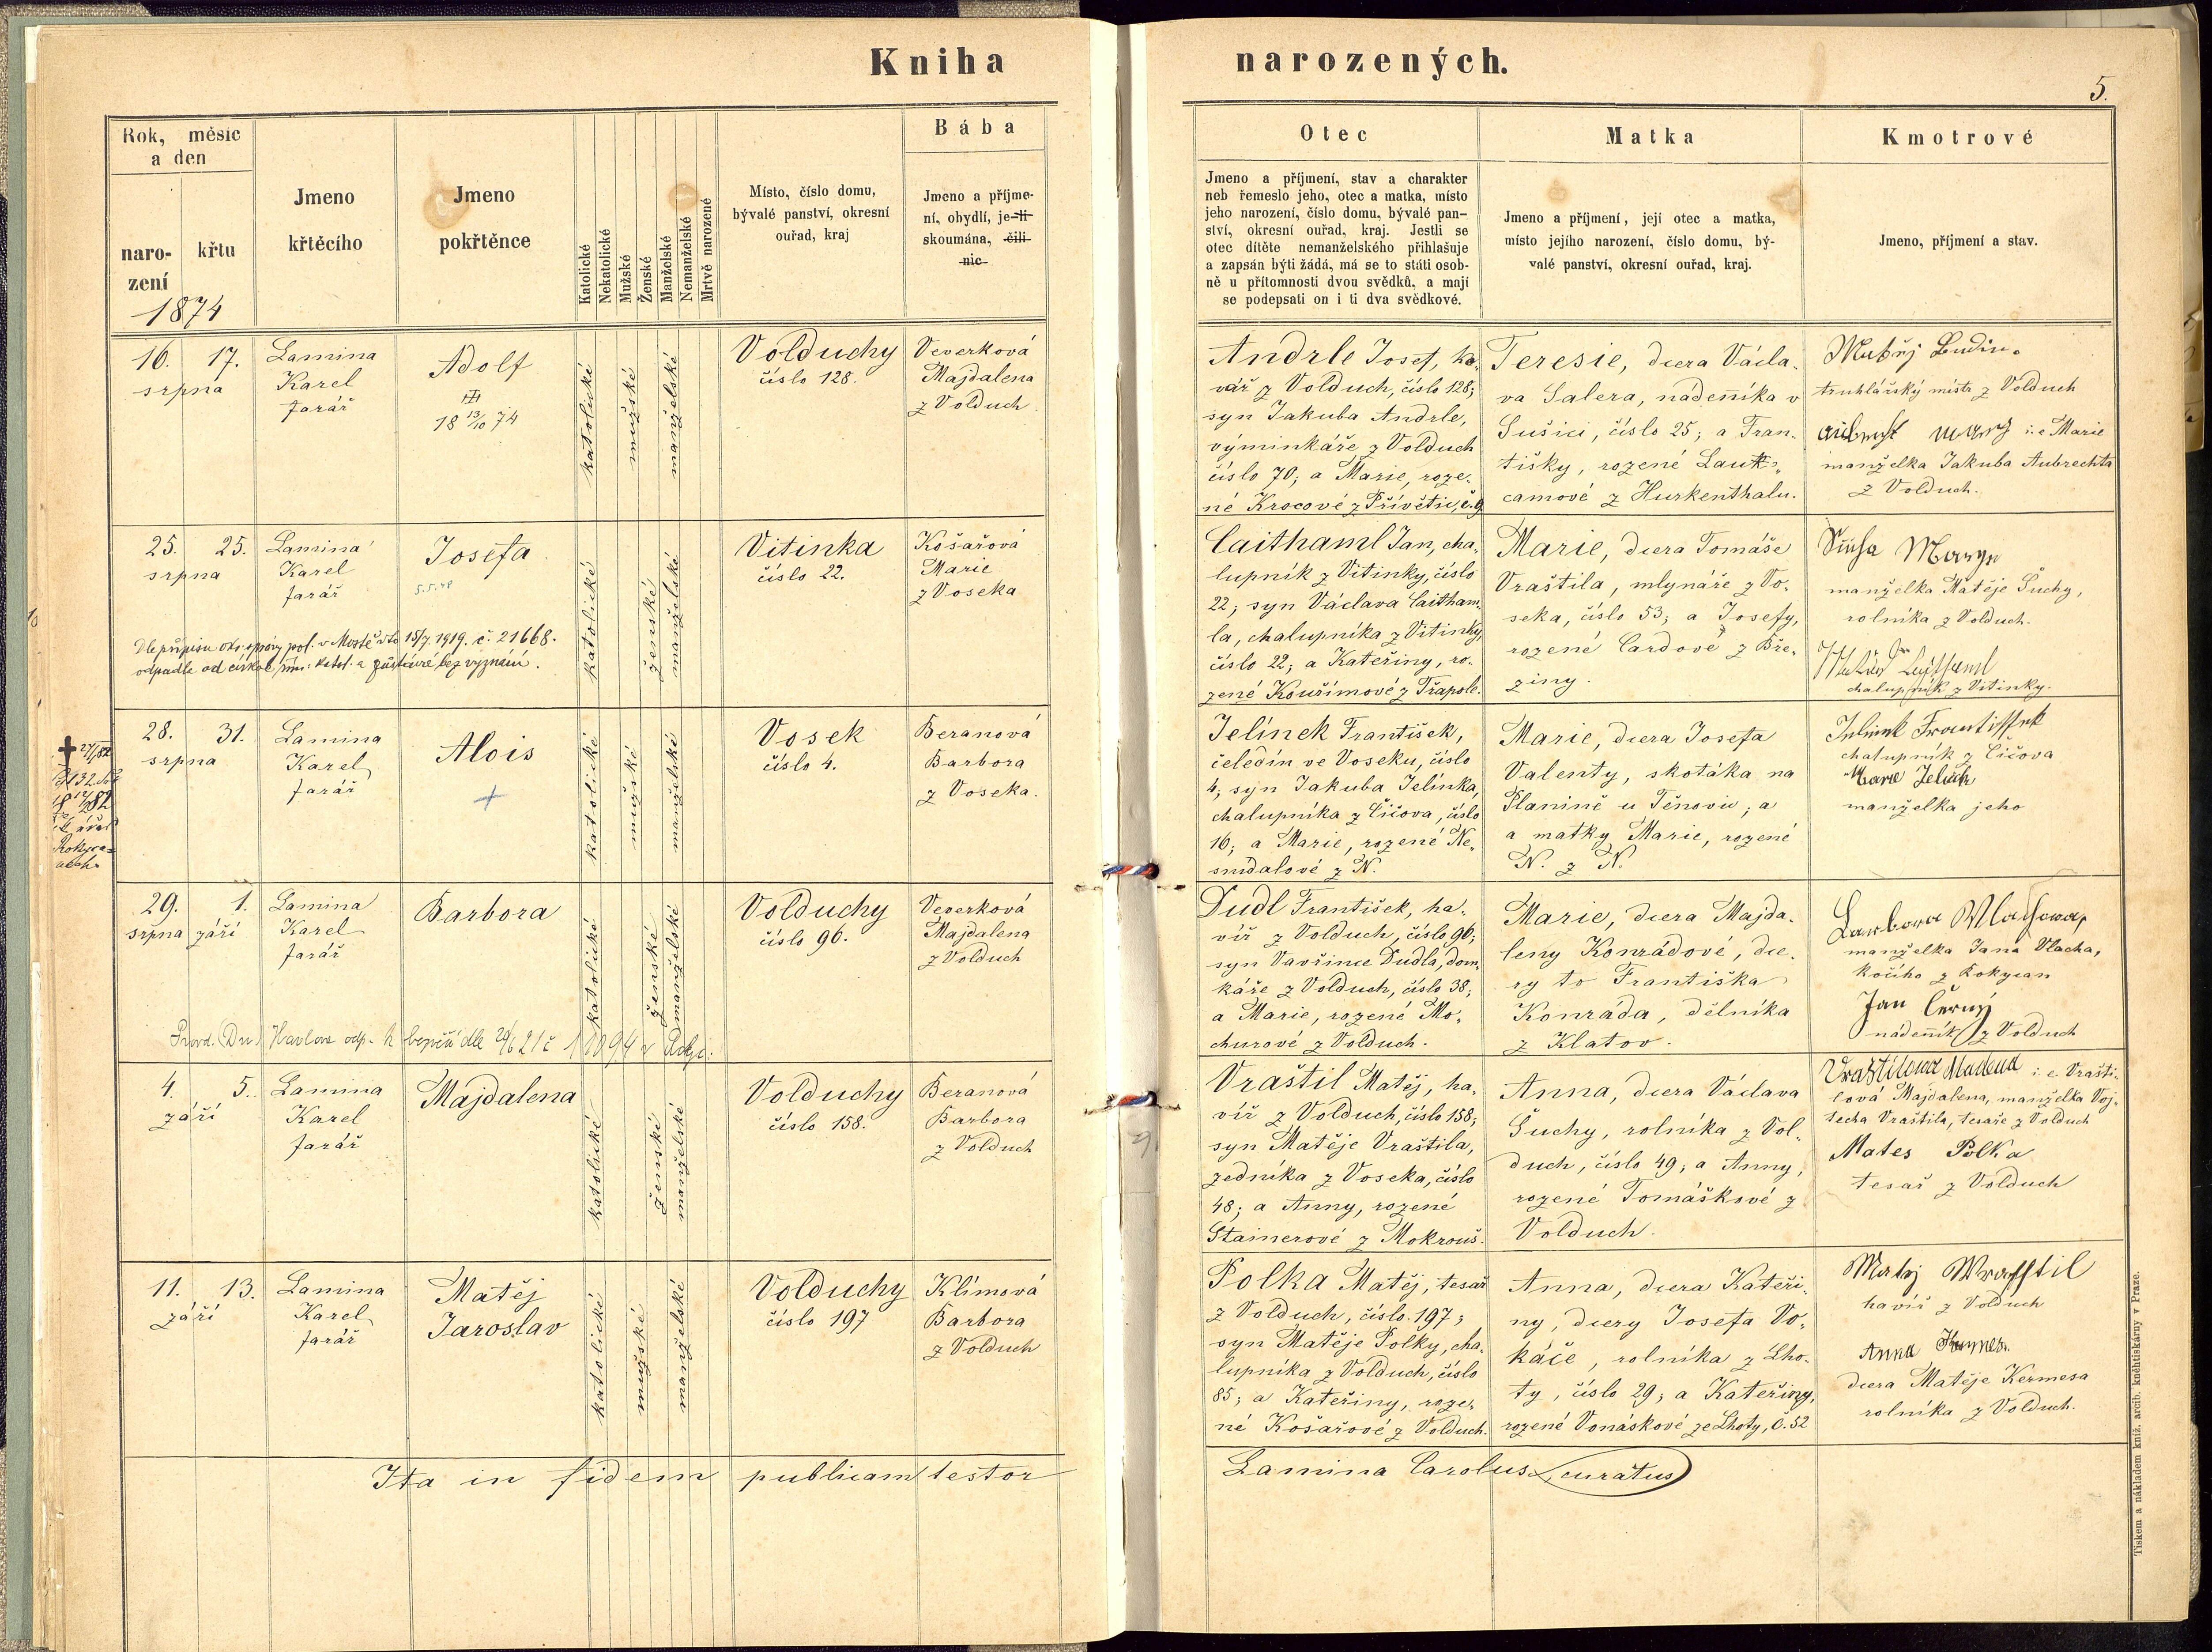 Kniha narozených.
5.
Rok, měsíc
a den
naro-
zení
křtu
1874
Jmeno
křtěcího
Jmeno
pokřtěnce
Katolické
Nekatolické
Mužské
Ženské
Manželské
Nemanželské
Mrtvě narozené
Místo, číslo domu,
bývalé panství, okresní
ouřad, kraj
Bába
Jmeno a příjme-
ní, obydlí, je-li
skoumána, čili
nic
Otec
Jmeno a příjmení, stav a charakter
neb řemeslo jeho, otec a matka, místo
jeho narození, číslo domu, bývalé pan-
ství, okresní ouřad, kraj. Jestli se
otec dítěte nemanželského přihlašuje
a zapsán býti žádá, má se to státi osob-
ně u přítomnosti dvou svědků, a mají
se podepsati on i ti dva svědkové.
Matka
Jmeno a příjmení, její otec a matka,
místo jejího narození, číslo domu, bý-
valé panství, okresní ouřad, kraj.
Kmotrové
Jmeno, příjmení a stav.
16. 17.
srpna
Lamina
Karel
farář
Adolf
18 13/10 74
katolické
mužské
manželské
Volduchy
číslo 128.
Veverková
Majdalena
z Volduch
Andrle Josef, ko-
vář z Volduch, číslo 128;
syn Jakuba Andrle,
výminkáře z Volduch
číslo 70; a Marie, roze-
né Krocové z Přívětic, č. 9
Teresie, dcera Václa-
va Salera, nádeníka v
Sušici, číslo 25; a Fran-
tišky, rozené Lauk-
camové z Hurkenthalu.
Matěj
truhlářský mistr z Volduch
i. e. Marie
manželka Jakuba Aubrechta
z Volduch.
25. 25.
srpna
Lamina
Karel
farář
Josefa
5.5.48
katolické
ženské
manželské
Vitinka
číslo 22.
Košařová
Marie
z Voseka
Caithaml Jan, cha-
lupník z Vitinky, číslo
22; syn Václava Caitham-
la, chalupníka z Vitinky,
číslo 22; a Kateřiny, ro-
zené Kouřímové z Třapole.
Marie, dcera Tomáše
Vraštila, mlynáře z Vo-
seka, číslo 53; a Josefy,
rozené Cardové z Bře-
ziny.
manželka Matěje Suchy,
rolníka z Volduch.
chalupník z Vitinky.
Dle přípisu okr. správy pol. v Mostě dto 15/7. 1919. č. 21668.
odpadla od církve řím. katol. a zůstává bez vyznání.
28. 31.
srpna
Lamina
Karel
farář
Alois
katolické
mužské
manželské
Vosek
číslo 4.
Beranová
Barbora
z Voseka.
Jelínek František,
čeledín ve Voseku, číslo
4; syn Jakuba Jelínka,
chalupníka z Čičova, číslo
16; a Marie, rozené Ne-
snídalové z N.
Marie, dcera Josefa
Valenty, skotáka na
Planině u Těnovic; a
a matky Marie, rozené
N. z N.
chalupník z Čičova
manželka jeho
29. 1.
srpna září
Lamina
Karel
farář
Barbora
katolické
ženské
manželské
Volduchy
číslo 96.
Veverková
Majdalena
z Volduch
Dudl František, ha-
víř z Volduch, číslo 96;
syn Vavřince Dudla, dom-
káře z Volduch, číslo 38;
a Marie, rozené Mo-
churové z Volduch.
Marie, dcera Majda-
leny Konrádové, dce-
ry to Františka
Konráda, dělníka
z Klatov.
manželka Jana Vlacha,
kočího z Rokycan
Jan Černý
nádeník z Volduch
4. 5.
září
Lamina
Karel
farář
Majdalena
katolické
ženské
manželské
Volduchy
číslo 158.
Beranová
Barbora
z Volduch
Vraštil Matěj, ha-
víř z Volduch, číslo 158;
syn Matěje Vraštila,
zedníka z Voseka, číslo
48; a Anny, rozené
Stainerové z Mokrouš.
Anna, dcera Václava
Suchy, rolníka z Vol-
duch, číslo 49; a Anny,
rozené Tomáškové z
Volduch.
i. e. Vrašti-
lová Majdalena, manželka Voj-
těcha Vraštila, tesaře z Volduch
Mates Polka
tesař z Volduch
11. 13.
září
Lamina
Karel
farář
Matěj
Jaroslav
katolické
mužské
manželské
Volduchy
číslo 197
Klímová
Barbora
z Volduch
Polka Matěj, tesař
z Volduch, číslo 197;
syn Matěje Polky, cha-
lupníka z Volduch, číslo
85; a Kateřiny, roze-
né Košařové z Volduch.
Anna, dcera Kateři-
ny, dcery Josefa Vo-
káče, rolníka z Lho-
ty, číslo 29; a Kateřiny,
rozené Vonáskové ze Lhoty, č. 52
Matěj Wrasstil
havíř z Volduch
Anna
dcera Matěje Kermesa
rolníka z Volduch.
Ita in fidem publicam testor
Lamina Carolus, curatus
Tiskem a nákladem kníž. arcib. knihtiskárny v Praze.